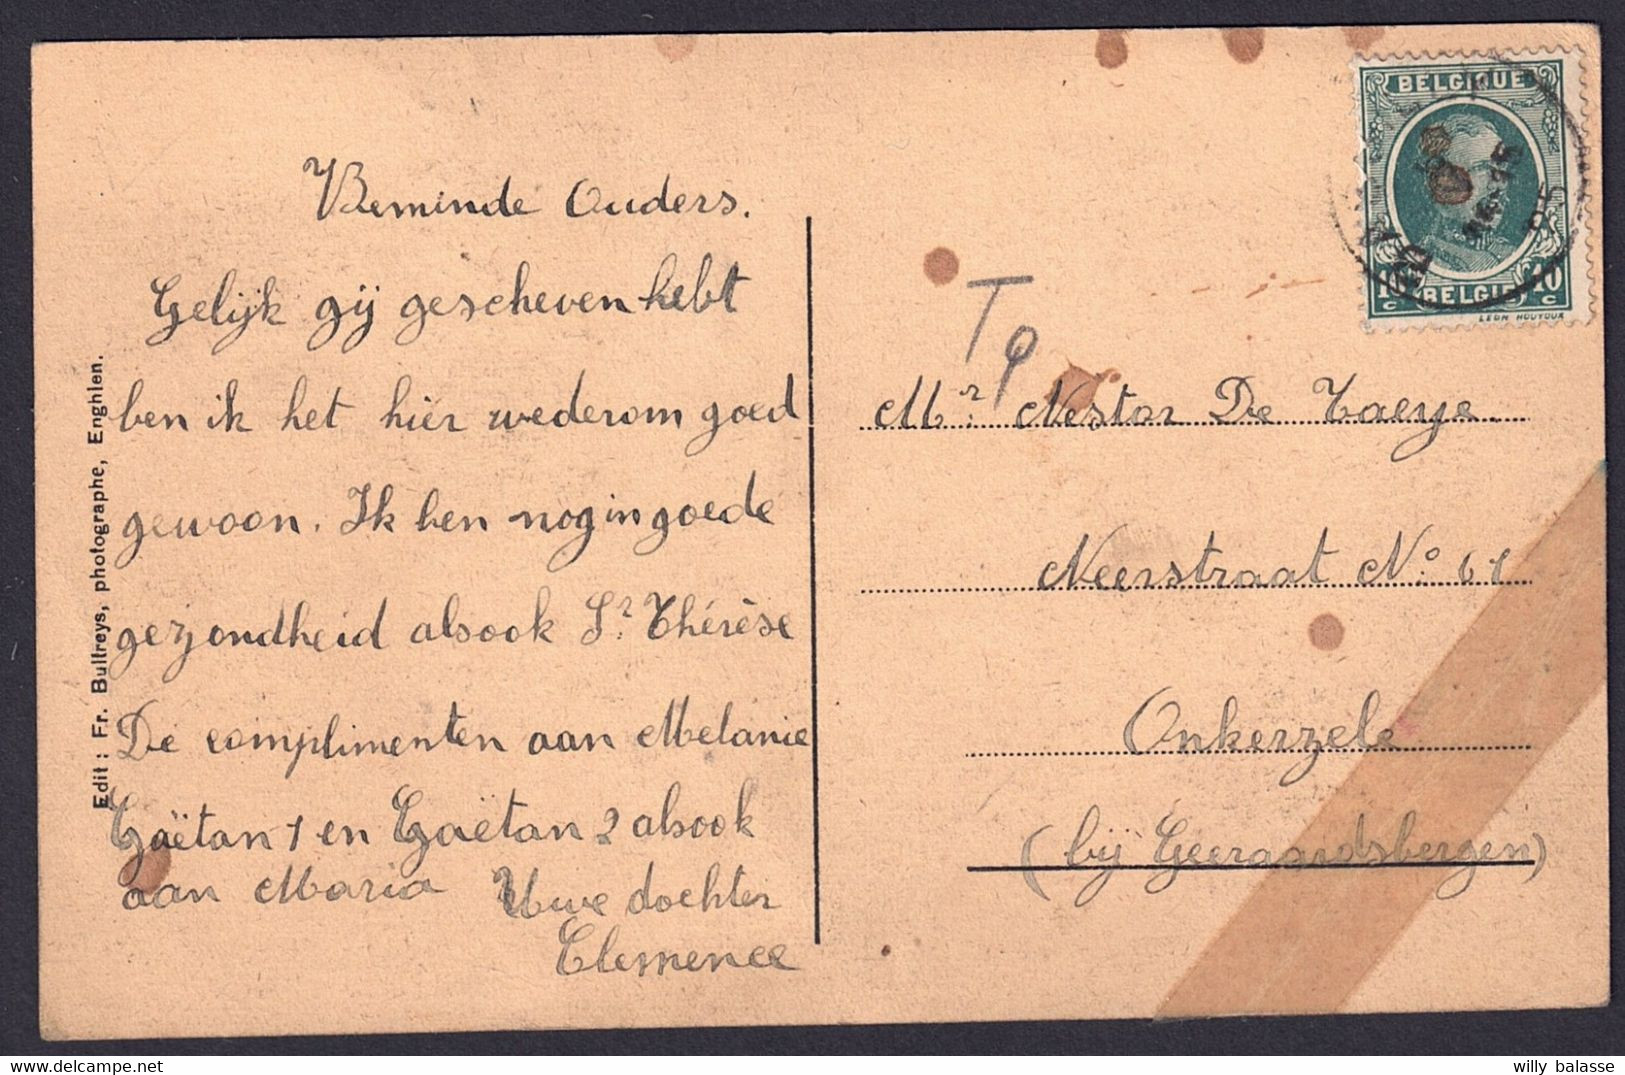 BELGIQUE
10 10
c BELGIË c
LEON HOUYOUX
Beminde Ouders.
Gelijk gij gescheven hebt
ben ik het hier wederom goed
gewoon. Ik ben nog in goede
gezondheid alsook Sr. Thérèse
De complimenten aan Melanie
Gaëtan 1 en Gaëtan 2 alsook
aan Maria Uwe dochter
Clemence
Edit : Fr. Bultreys, photographe, Enghien.
T
Mr. Nestor De Taeye.
Neerstraat No. 61
Onkerzele
(bij Geeraardsbergen)
willy balasse